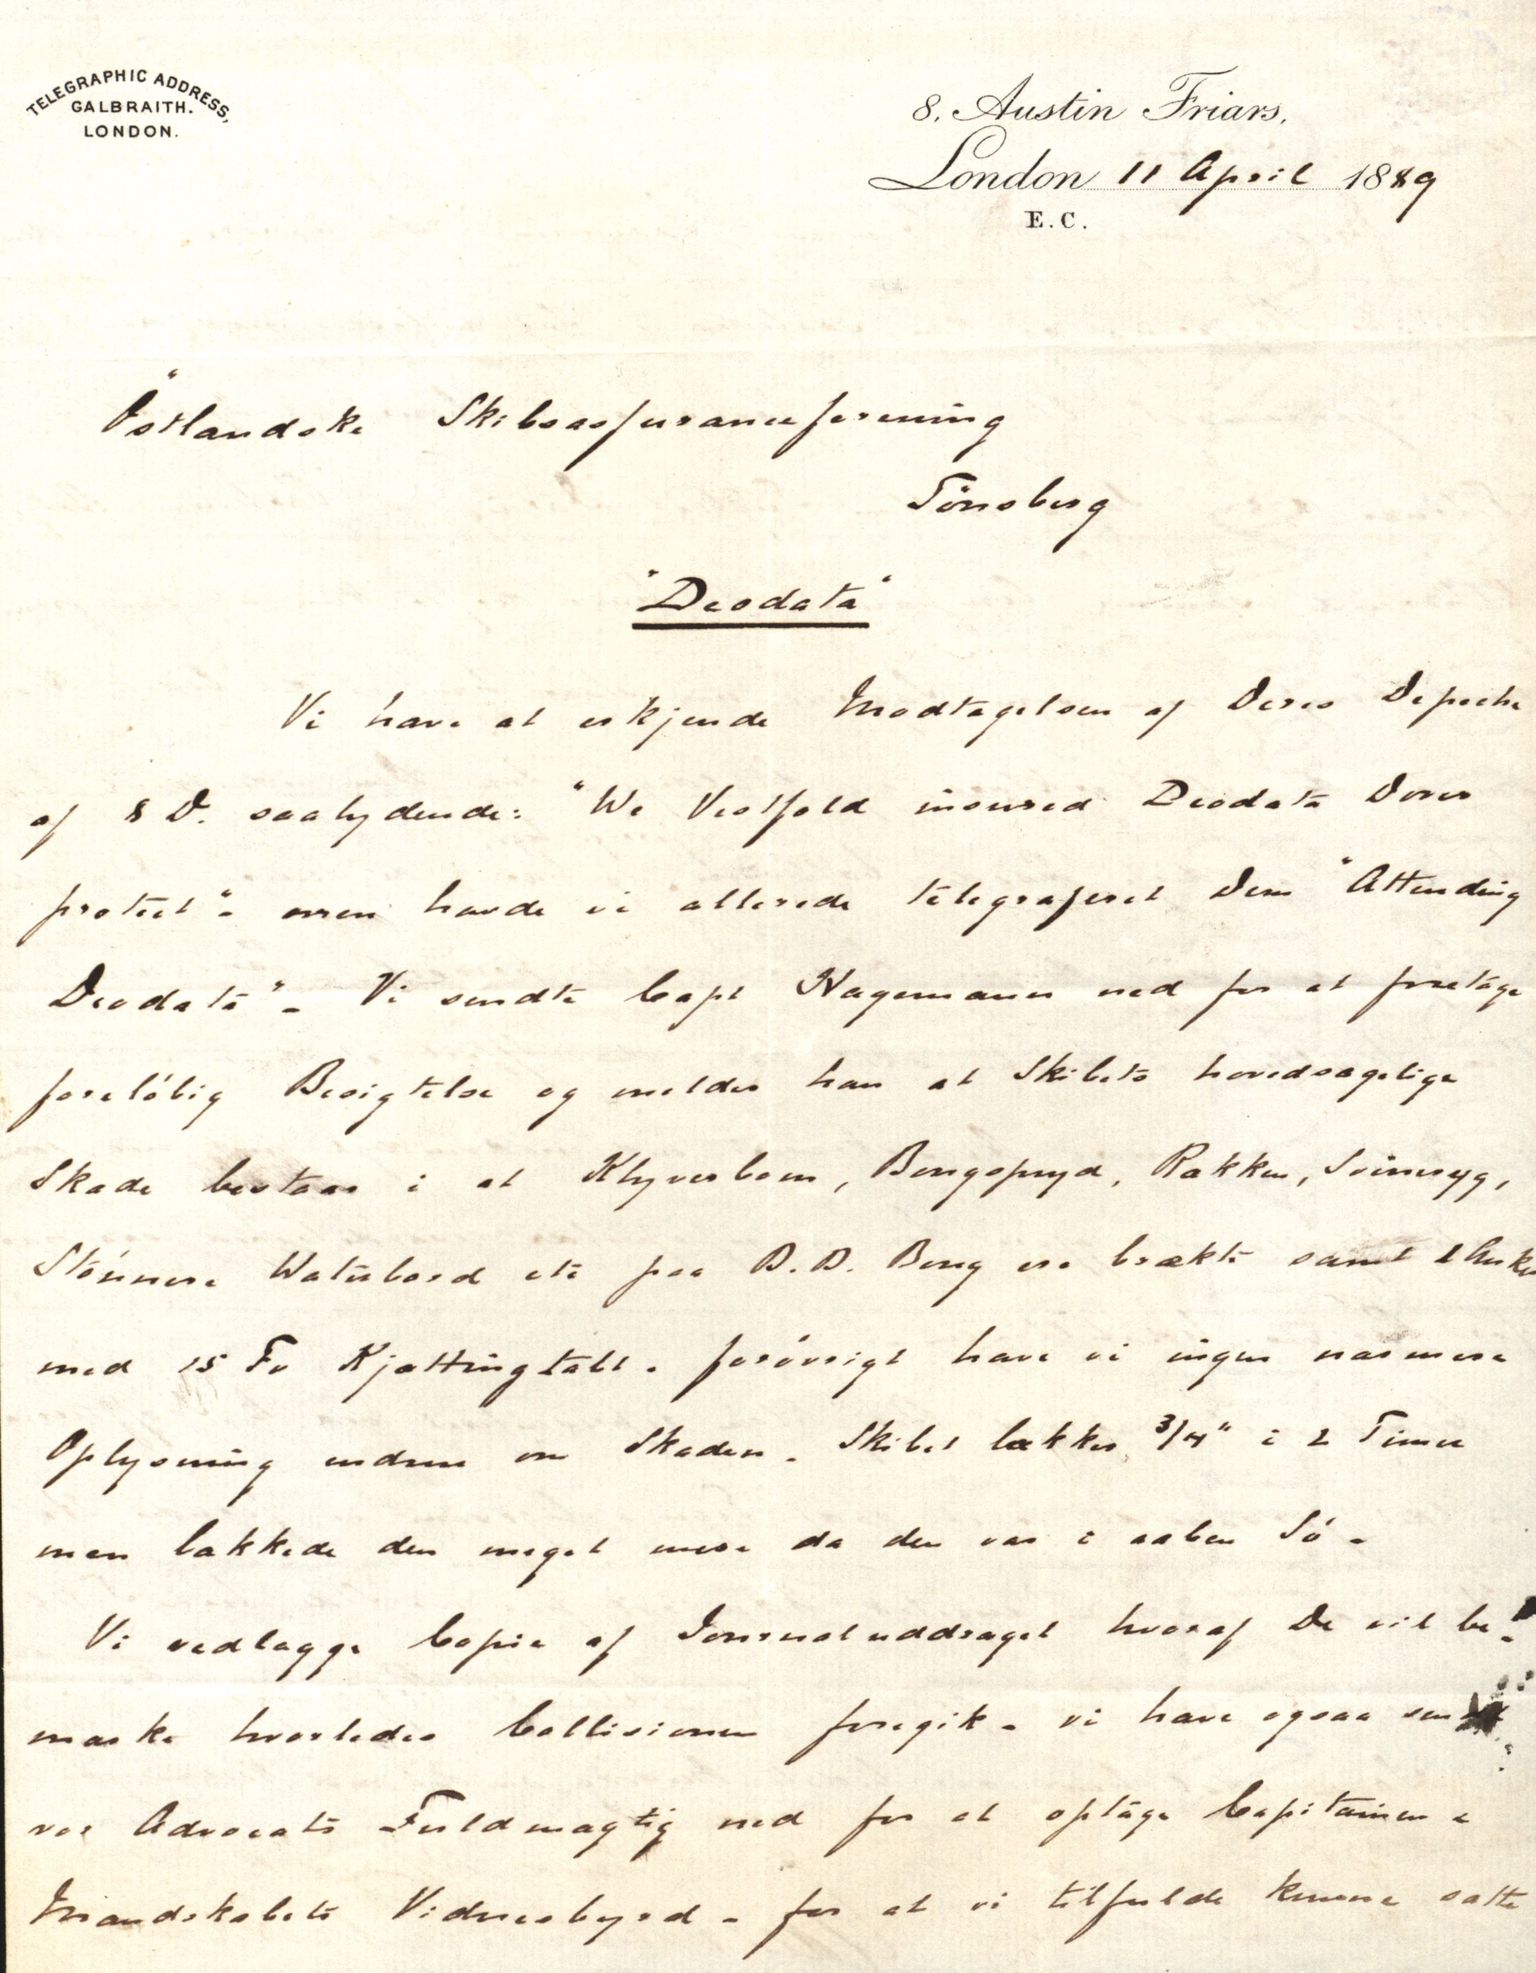 TELEGRAPHIC ADDRESS,
GALBRAITH.
LONDON.
8, Austin Friars,
London 11 April 1889
E.C.
Östlandske Skibsassuranceforening
Tönsberg
"Deodata"
Vi have at erkjende Modtagelsen af Deres Depeche
af 8 D. saalydende: "We Vestfold insured Deodata Dover
protect" - men havde vi allerede telegraferet Dem "Attending
Deodata" - Vi sendte Capt Hagemann ned for at foretage
foreløbig Besigtelse og melder han at Skibets hovedsagelige
Skade bestaar i at Klyverbom, Bougspryd, Rækken, Svineryg,
Stønnere Waterbord etc paa B.B. Boug ere brækte samt 1 Anker
med 15 Fv Kjættingtabt. forøvrigt have vi ingen nærmere
Oplysning endnu om Skaden. Skibet lækker 3/4" i 2 Timer
men lækkede den meget mere da den var i aaben Sø -
Vi vedlægge Copie af Journaluddraget hvoraf De vil be-
mærke hvorledes Collisionen foregik - vi have ogsaa sendt
vor Advocats Fuldmægtig ned for at optage Capitainen &
Mandskabets Vidnesbyrd - for at vi tilfulde kunne sætte